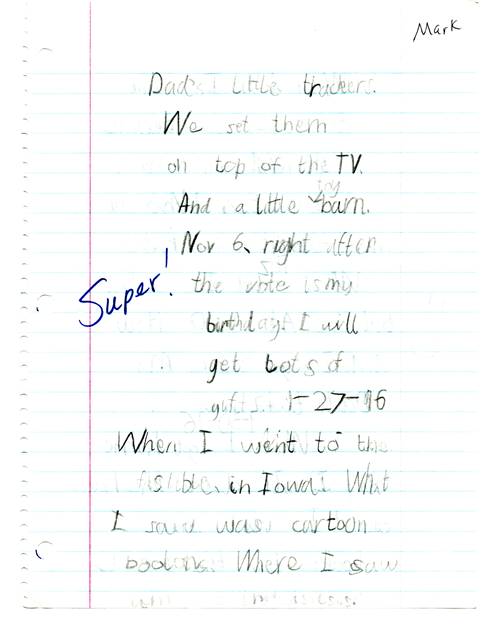 Mark
Dad's little truckers.
We set them
on top of the TV.
toy
And a little barn.
Nov 6, right after
Super!
the vote is my
birthday! I will
get lots of
gifts. 1-27-96
When I went to the
in Iowa! What
I saw was cartoon
Where I saw